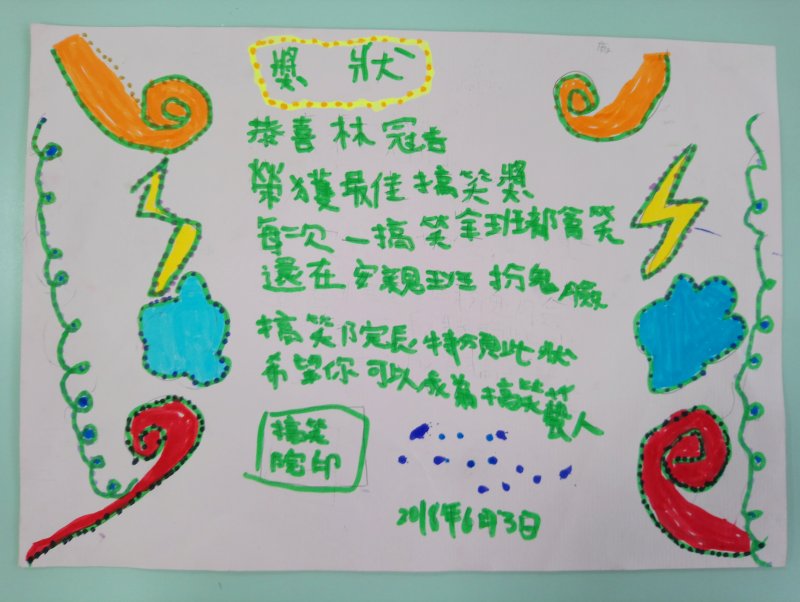 獎狀
恭喜林冠吉
榮獲最佳搞笑獎
每次一搞笑全班都會笑
還在安親班扮鬼臉
搞笑院長特頒此狀
希望你可以成為搞笑藝人
搞笑
院印
2018年6月3日